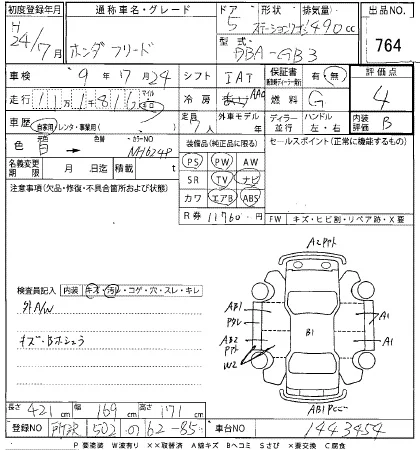 初度登録年月 通称車名・グレード ドア 形状 排気量 出品NO.
H24/7月 ホンダ フリード 5 ステーションワゴン 1490cc 764
型式 DBA-GB3
車検 9年17月24 シフト IAT 保証書 有・無 評価点
走行 マイル キロ 冷房 AAC 燃料 G 4
車歴 自家用/レンタ・事業用( ) 定員 7人 外車モデル ディーラー・並行 ハンドル 左・右 内装評価 B
色 白 色替 カラーNO NH624P 装備品(純正品に限る) セールスポイント(正常に機能するもの)
名義変更期限 積載量 t PS PW AW
注意事項(欠品・修復・不具合箇所および状態) SR TV ナビ
カワ エアB ABS
R券 11760円 FW キズ・ヒビ割・リペア跡・X要
検査員記入 内装 キズ・汚レ・コゲ・穴・スレ・キレ
外A/W
キズ・Bホシュウ
A2
AB1
AB2
W2
B1
A1
A1
AB1
長さ 421cm 幅 169cm 高さ 171cm
登録NO 所沢 502 の 62-85 車台NO 1443454
P 要塗装 W波有り ××取替済 A線キズ Bヘコミ Sさび ×要交換 C腐食